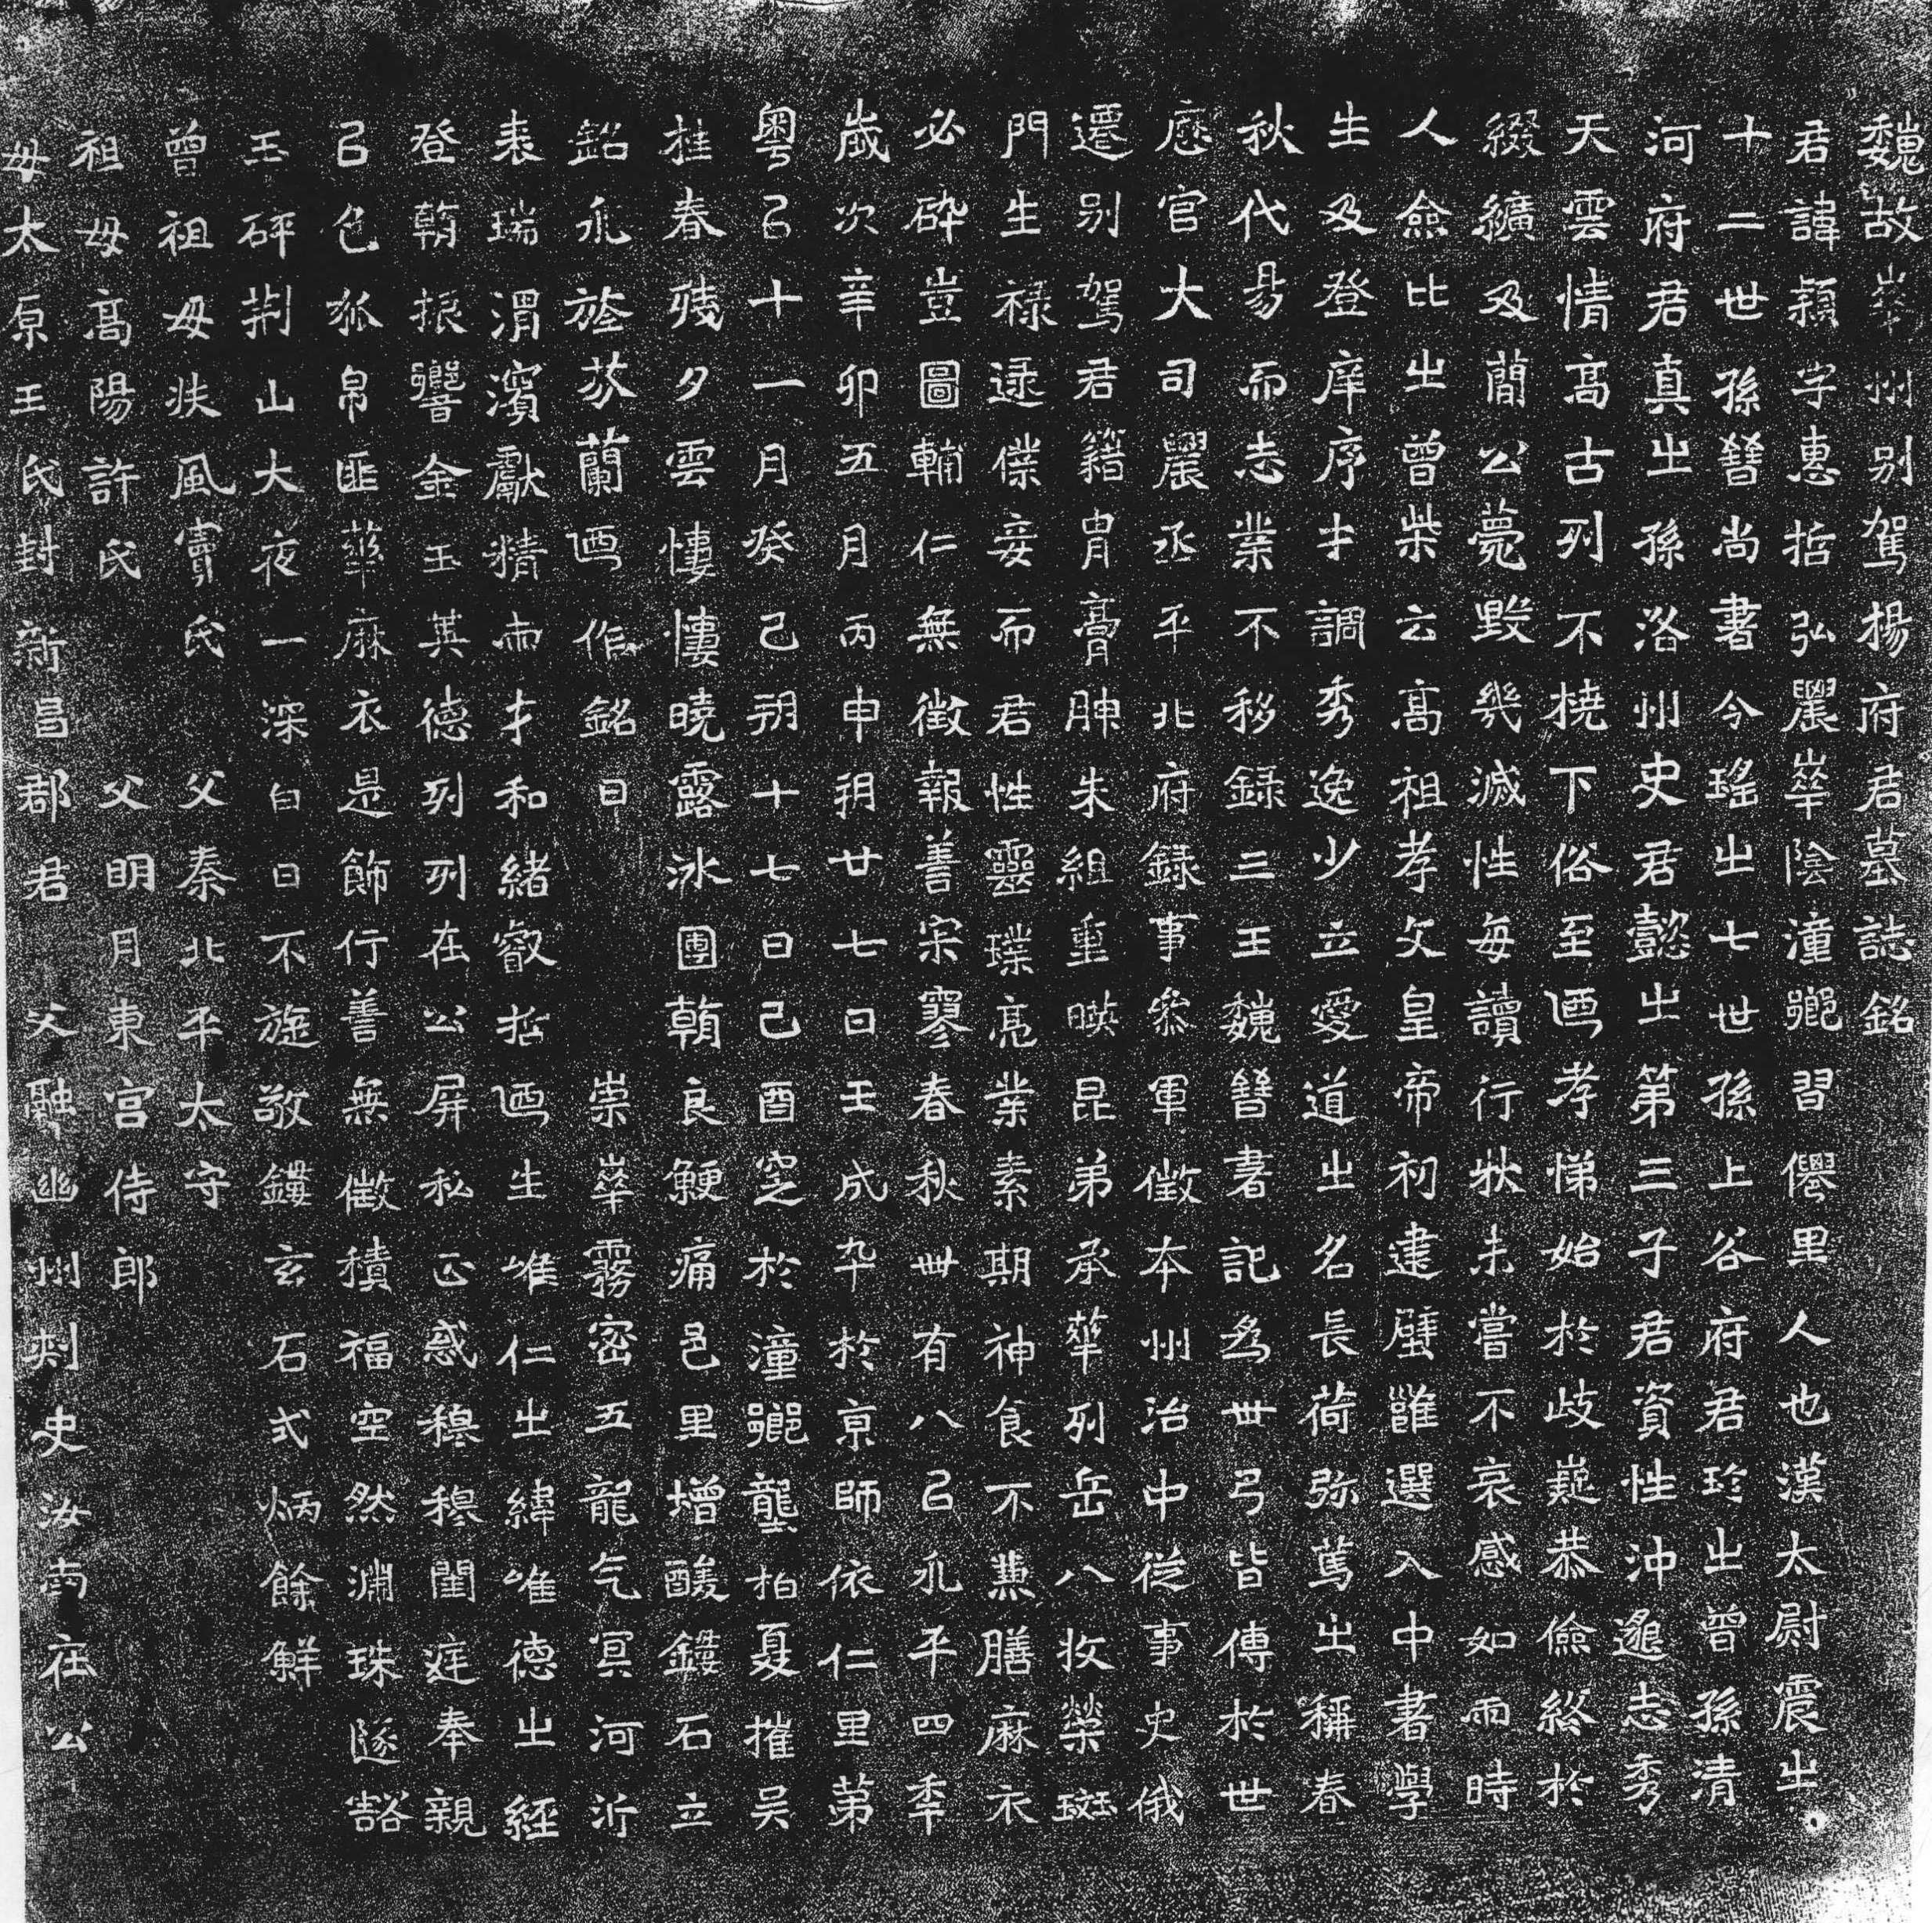 魏故華州別駕楊府君墓誌銘
君諱穎字惠哲弘農華陰潼鄉習僊里人也漢太尉震之
十二世孫晉尚書令瑤之七世孫上谷府君珍之曾孫清
河府君真之孫洛州史君懿之第三子君資性沖邈志秀
天雲情高古列不撓下俗至迺孝悌始於歧嶷恭儉終於
綴纊及蘭公薨毀幾滅性每讀行狀未嘗不哀感如雨時
人僉比之曾柴云高祖孝文皇帝初建壁雝選入中書學
生及登庠序才調秀逸少立愛道之名長荷弥篤之稱春
秋代易而志業不移錄三王魏晉書記為卅弓皆傳於世
歷官大司農丞平北府錄事參軍徵本州治中從事史俄
遷別駕君籍冑膏腴朱組重暎昆弟承華列岳八牧榮斑
門生祿逮僕妾而君性靈璞亮業素期神食不兼膳麻衣
必碎豈圖輔仁無徵報善寀寥春秋卌有八以永平四秊
歲次辛卯五月丙申朔廿七日壬戌卒於京師依仁里第
粵以十一月癸巳朔十七日己酉窆於潼鄉龔柏夏摧吴
桂春殘夕雲悽悽曉露冰團朝良鯁痛邑里增酸鐫石立
銘永旌芬蘭迺作銘曰 崇華霧密五龍气冥河沂
表瑞渭濱獻精雨才和緒叡哲迺生唯仁之緯唯德之經
登朝振響金玉其德列列在公屏私正惑穆穆閨庭奉親
以色狐帛匪華麻衣是飾行善無徵積福空然淵珠隧豁
玉碎荆山大夜一深白日不旋敬鐫玄石式炳餘鮮
曾祖母扶風竇氏 父秦北平太守
祖母高陽許氏 父明月東宮侍郎
母太原王氏封新昌郡君 父融幽州刺史汝南莊公